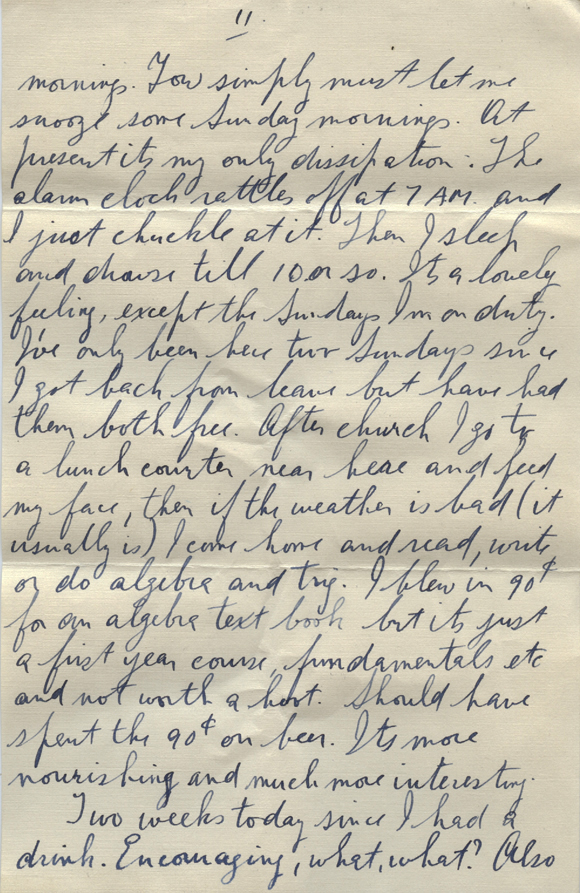 11
mornings. You simply must let me
snooze some Sunday mornings. At
present its my only dissipation. The
alarm clock rattles off at 7 AM. and
I just chuckle at it. Then I sleep
and drowse till 10 or so. Its a lovely
feeling, except the Sundays I'm on duty.
I've only been here two Sundays since
I got back from leave but have had
them both free. After church I go to
a lunch counter near here and feed
my face, then if the weather is bad (it
usually is) I come home and read, write
or do algebra and trig. I blew in 90¢
for an algebra text book but its just
a first year course, fundamentals etc
and not worth a hoot. Should have
spent the 90¢ on beer. Its more
nourishing and much more interesting.
Two weeks today since I had a
drink. Encouraging, what, what? Also